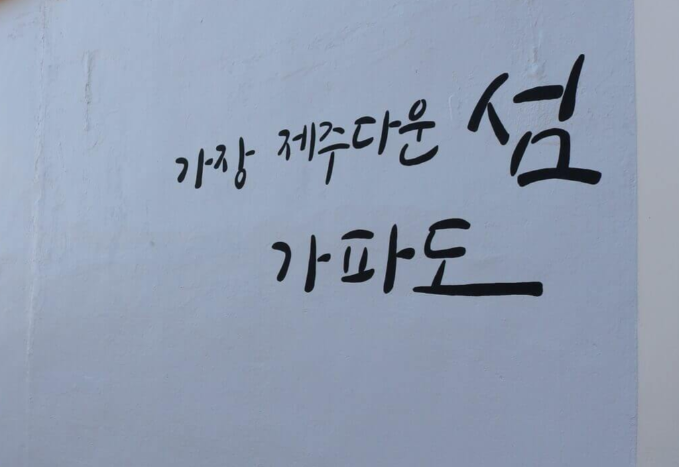 가장 제주다운 섬
가파도